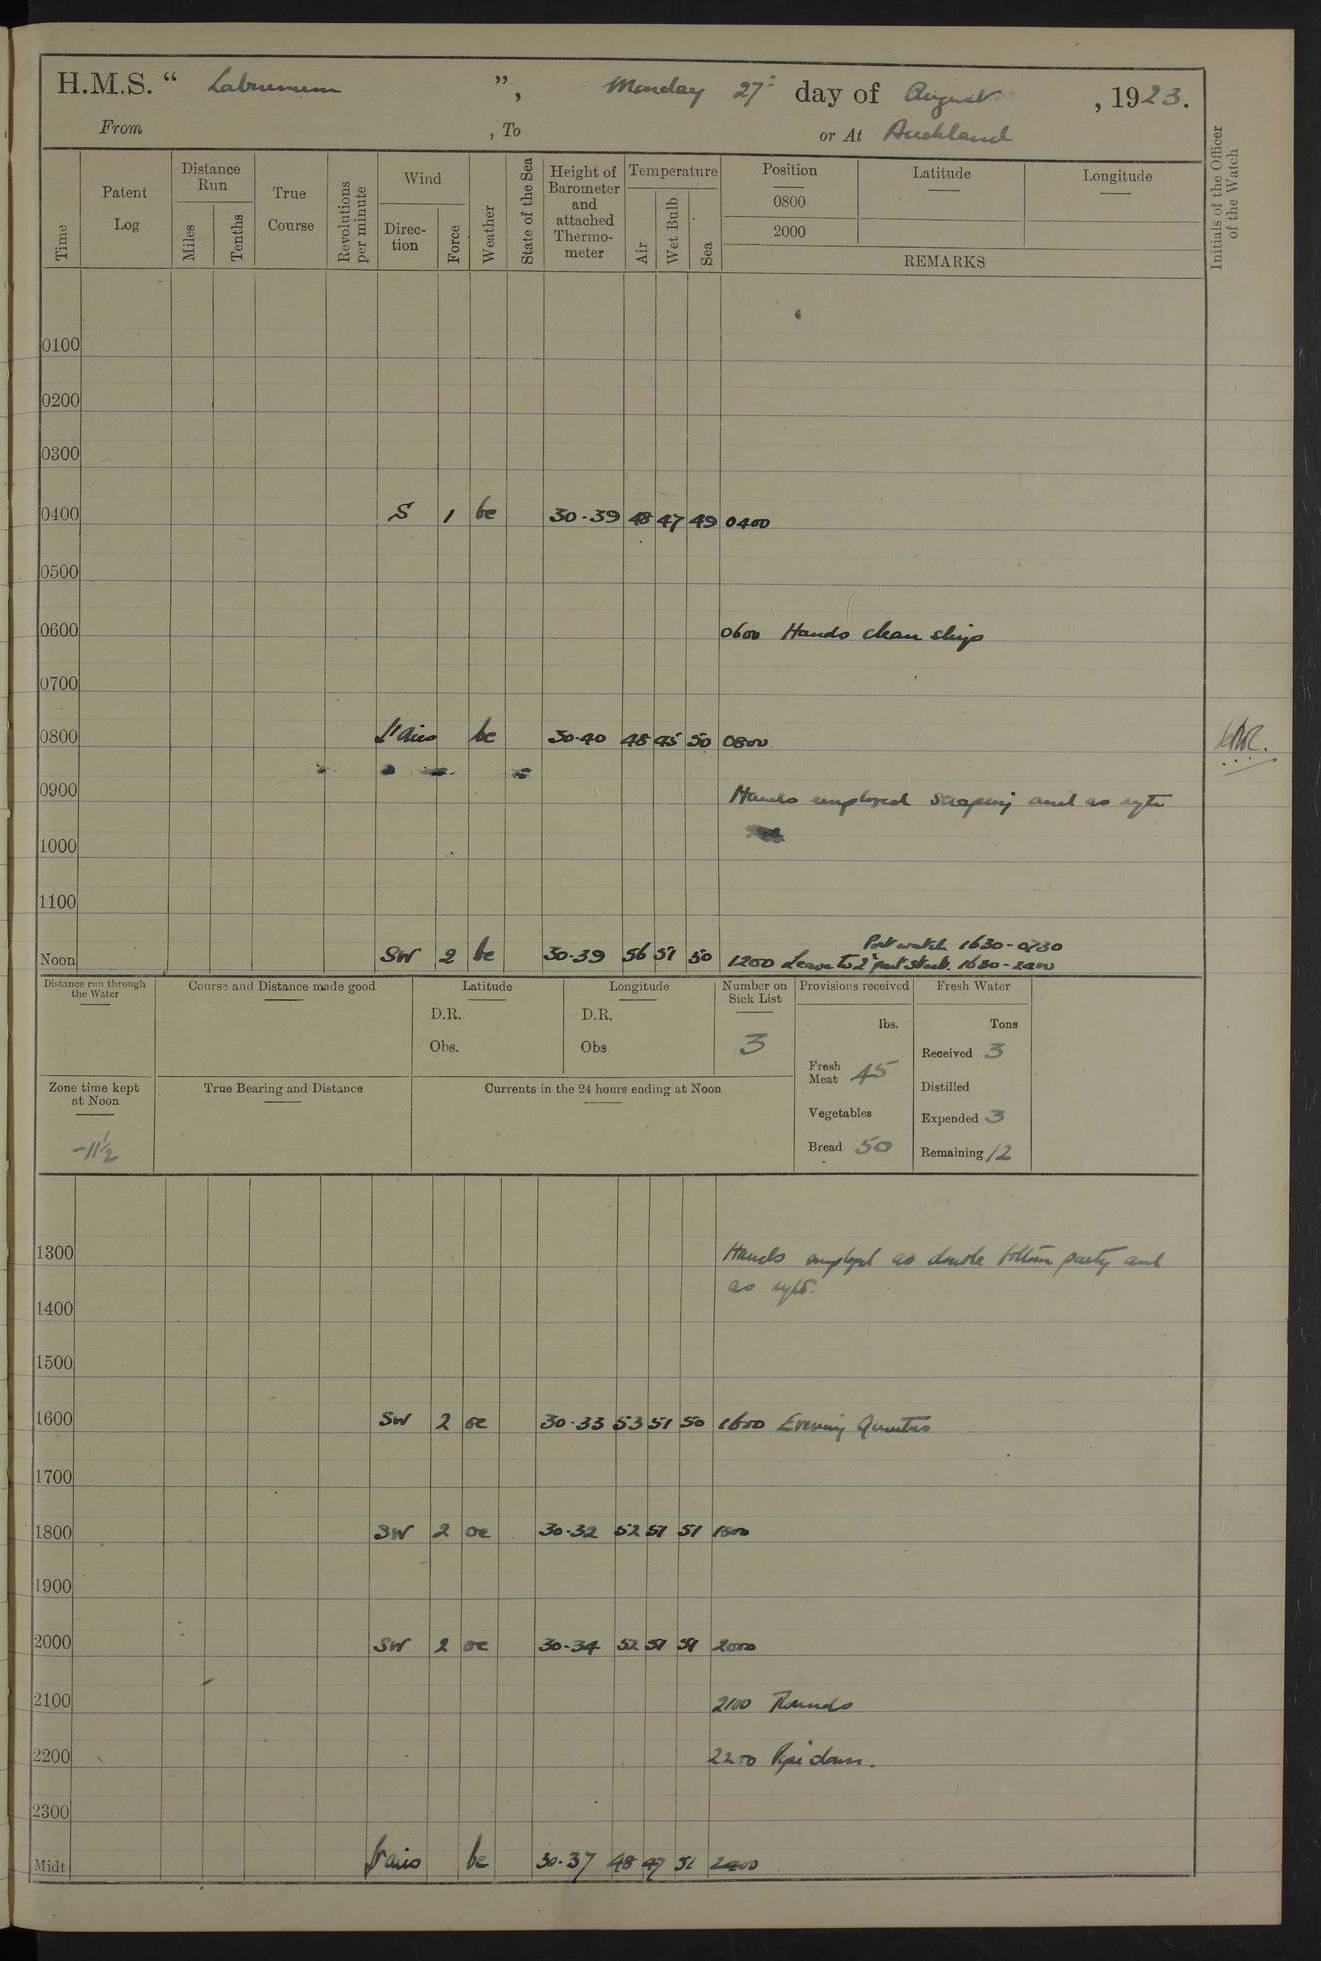 H.M.S. “ Labrunum ”, Monday 27: day of August , 1923.
From , To or At Auckland
Time
Patent Log
Distance Run
Miles
Tenths
True Course
Revolutions per minute
Wind
Direc-tion
Force
Weather
State of the Sea
Height of Barometer and attached Thermo-meter
Temperature
Air
Wet Bulb
Sea
Position
0800
2000
Latitude
Longitude
REMARKS
Initials of the Officer of the Watch
0100
0200
0300
0400 S 1 bc 30.39 48 47 49 0400
0500
0600 0600 Hands clean ship
0700
0800 L' airs bc 30.40 48 45 50 0800
0900 Hands employed scraping and as reqte
1000
1100
Port watch 1630-0730
Noon SW 2 bc 30.39 56 51 50 1200 Leave to 2nd part Stbd. 1630-2200
Distance run through the Water
Course and Distance made good
Latitude
D.R.
Obs.
Longitude
D.R.
Obs.
Number on Sick List
3
Provisions received
lbs.
Fresh Meat 45
Vegetables
Bread 50
Fresh Water
Tons
Received 3
Distilled
Expended 3
Remaining 12
Zone time kept at Noon
-11½
True Bearing and Distance
Currents in the 24 hours ending at Noon
1300 Hands employed as double bottom party and
as reqte.
1400
1500
1600 SW 2 oc 30.33 53 51 50 1600 Evening Quarters
1700
1800 SW 2 oc 30.32 52 51 51 1800
1900
2000 SW 2 oc 30.34 52 51 51 2000
2100 2100 Rounds
2200 2200 Pipe down.
2300
Midt L' airs bc 30.37 48 47 51 2400